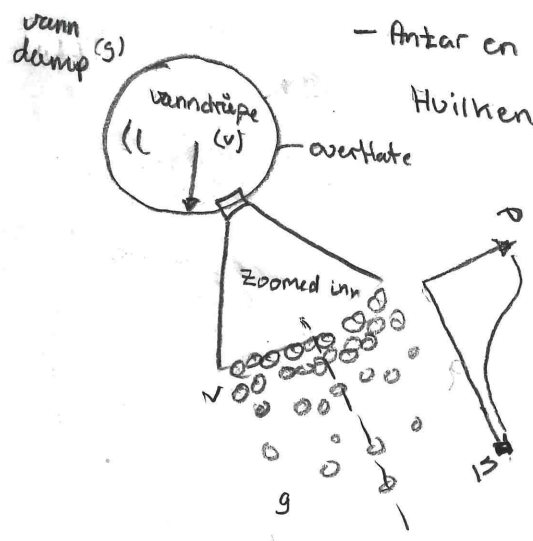 vann
damp (g)
- Antar en
Hvilken
vanndråpe
(v)
overflate
Zoomed inn
v
g